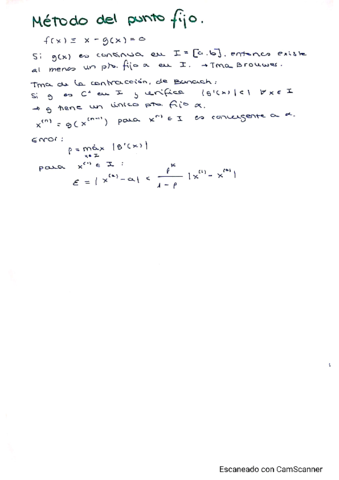 Método del punto fijo.
f(x) ≡ x - g(x) = 0
Si g(x) es continua en I = [a,b], entonces existe
al menos un pto. fijo α en I. → Tma Brouwer.
Tma de la contracción, de Banach:
Si g es C¹ en I y verifica |g'(x)| < 1 ∀x ∈ I
→ g tiene un único pto fijo α.
x⁽ⁿ⁾ = g(x⁽ⁿ⁻¹⁾) para x⁽⁰⁾ ∈ I es convergente a α.
Error:
ρ = máx |g'(x)|
x∈I
para x⁽⁰⁾ ∈ I:
ε = |x⁽ᵏ⁾ - α| < ρᵏ / (1 - ρ) |x⁽¹⁾ - x⁽⁰⁾|
Escaneado con CamScanner